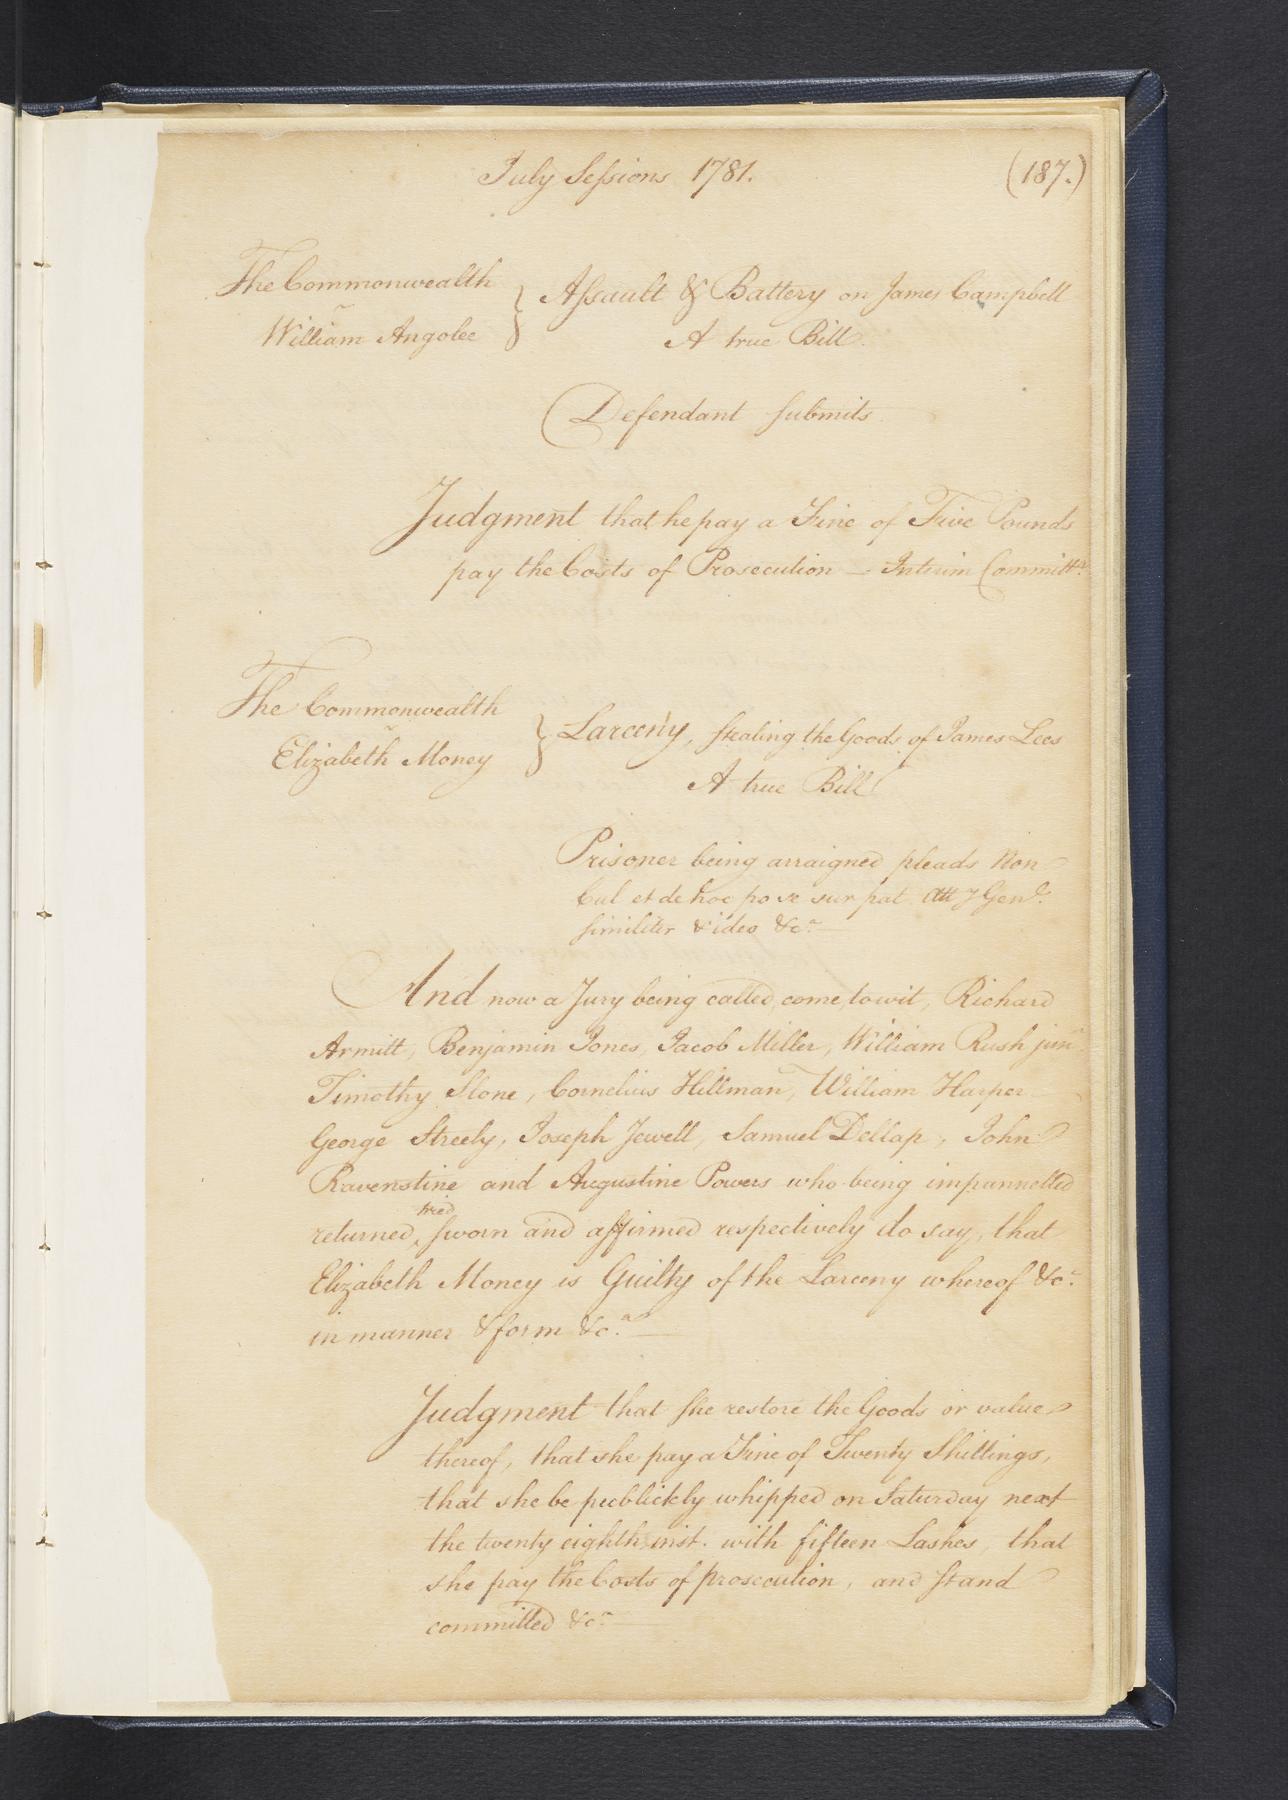 July Sessions 1781.
(187.)
The Commonwealth
v
William Angolee
Assault & Battery on James Campbell
A true Bill.
Defendant submits
Judgment that he pay a Fine of Five Pounds
pay the Costs of Prosecution — Interim Committr.
The Commonwealth
v
Elizabeth Money
Larceny, stealing the Goods of James Lees
A true Bill
Prisoner being arraigned pleads Non
Cul et de hoc po se sur pat. Atty Genl.
similiter & ideo &c.
And now a Jury being called, come, to wit, Richard
Armitt, Benjamin Jones, Jacob Miller, William Rush junr.
Timothy Stone, Cornelius Hillman, William Harper
George Streely, Joseph Jewell, Samuel Dellap, John
Ravenstine and Augustine Powers who being impannelled
returned, tried, sworn and affirmed respectively do say, that
Elizabeth Money is Guilty of the Larceny whereof &c.
in manner & form &c.a
Judgment that she restore the Goods or value
thereof, that she pay a Fine of Twenty Shillings,
that she be publickly whipped on Saturday next
the twenty eighth inst. with fifteen Lashes, that
she pay the Costs of prosecution, and stand
committed &c.